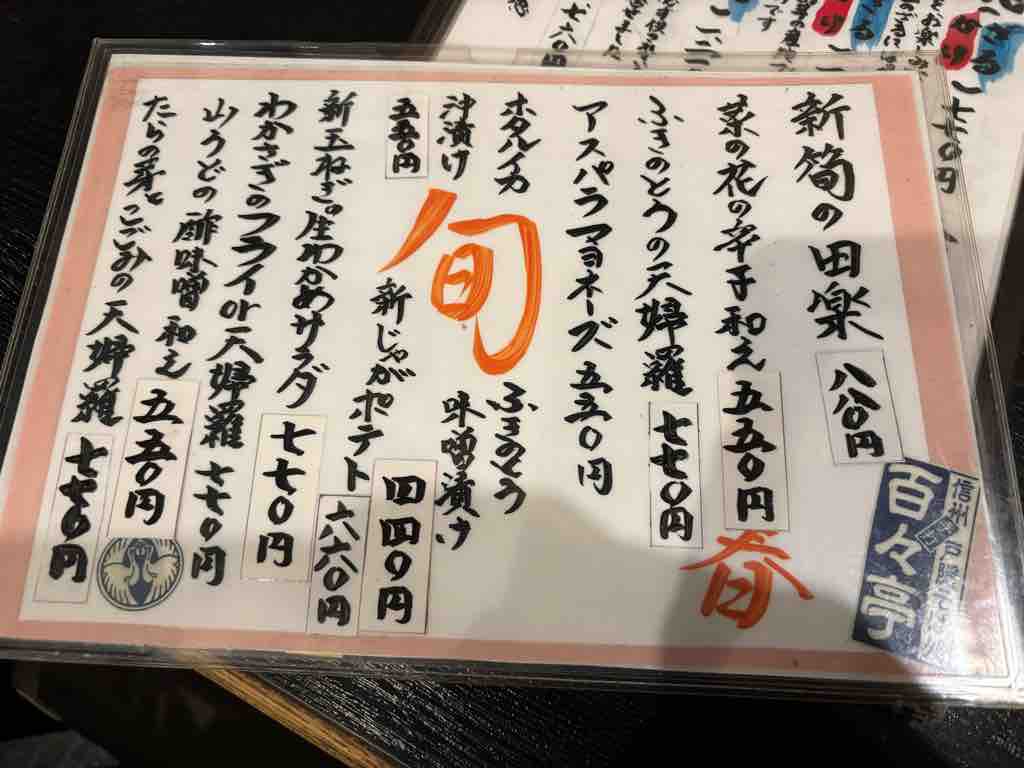 新筍の田楽 八八〇円
菜の花の辛子和え 五五〇円
ふきのとうの天婦羅 七七〇円
アスパラマヨネーズ 五五〇円
ホタルイカ
沖漬け
五五〇円
ふきのとう
味噌漬け
四四〇円
旬
新じゃがポテト 六六〇円
新玉ねぎ。生わかめサラダ 七七〇円
わかさぎのフライor天婦羅 七七〇円
山うどの酢味噌和え 五五〇円
たらの芽とこごみの天婦羅 七七〇円
春
信州
百々亭
七七〇円